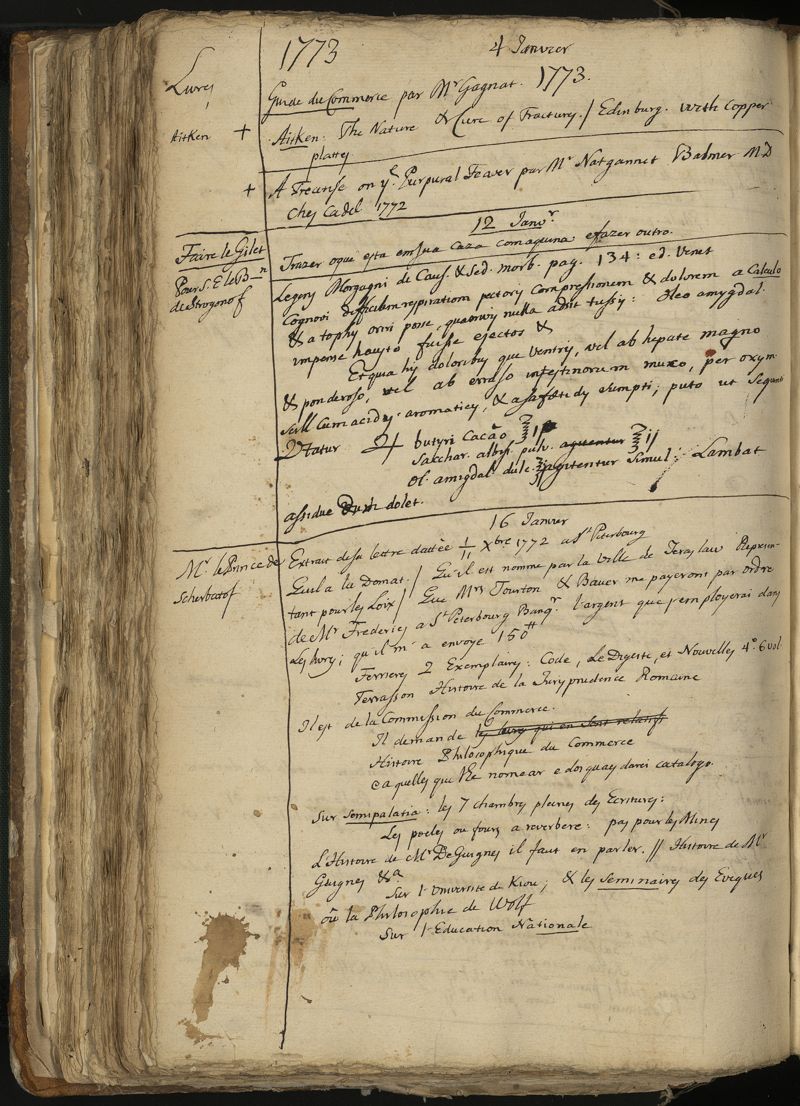 1773
4 Janvier
1773.
Livres
Guide du Commerce par Mr Gagnat.
Aitken + Aitken: The Nature & Cure of Fractures / Edinburg. with Copper
plattes
+ A Treatise on ye Purpural Feaver par Mr Natgannet Balmer MD
Ches Cadel 1772
12 Janvr
Faire le Gilet
Pour S. E. le Bn
de Strogonof
Trazer oque esta em sua Caza comaquina efazer outro.
Legens Morgagni de Caus. & Sed. morb. pag. 134: ed. Venet
Cognovi difficilem respirationem pectoris Compressionem & dolorem a Calculo
& a tophis oriri posse, quamvis nulla adsit tussis: Oleo amygdal.
impense hausto fuisse ejectos &
Et quia his doloribus que Ventris, vel ab hepate magno
& ponderoso, vel ab erraso intestinorum muco, per oxym
scill cum acidis aromaticis, & asa foetidis sumptis; puto ut sequens
Utatur ♃ butyri Cacáo ℥ j
Sacchar. albiss pulv. agitentur ℥ ij
Ol. amigdal dulc. ℥ agitentur simul: Lambat
assidue dum dolet.
16 Janvier
Mr. le Prince de
Scherbatof
Extrait de sa lettre dattée 1/11 Xbre 1772 a St Peterbourg
Quil a la Domat. / Qu'il est nomme par la Ville de Jeraslaw Represen-
tant pour les Loix / Que Mrs Tourton & Baver me payeront par ordre
de Mr Frederics a St Peterbourg Banqr l'argent que j'employerai dans
Les livres; qu'il m'a envoye 150 ₶
Ferrieres 2 Exemplaires: Code, Le Digeste, et Nouvelles 4º. 6 vol
Terrasson Histoire de la Jurisprudence Romaine
Il est de la Commission du Commerce.
Il demande les livres qui en sont relatifs
Histoire Philosophique du Commerce
e aquelles que lhe nomear e dos quaes darei catalogo.
Sur Semipalatia: les 7 chambres pleines des Ecritures:
Les poeles ou fours a reverbere: pas pour les Mines
L'Histoire de Mr De Guignes il faut en parler. // Histoire de Mr
Guignes &a
Sur l'Université de Kiow; & les Seminaires des Eveques
où la Philosophie de Wolf
Sur l'Education Nationale